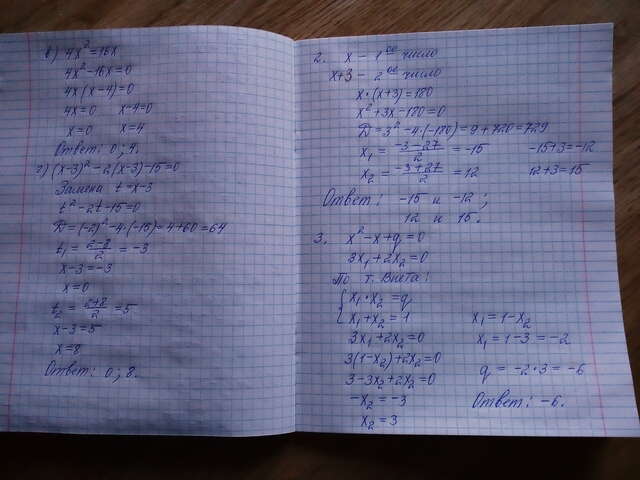 в) 4x²=16x
4x²-16x=0
4x(x-4)=0
4x=0 x-4=0
x=0 x=4
Ответ: 0; 4.
г) (x-3)²-2(x-3)-15=0
Замена t=x-3
t²-2t-15=0
D=(-2)²-4·(-15)=4+60=64
t₁=(2-8)/2=-3
x-3=-3
x=0
t₂=(2+8)/2=5
x-3=5
x=8
Ответ: 0; 8.
2. x - 1ое число
x+3 - 2ое число
x·(x+3)=180
x²+3x-180=0
D=3²-4·(-180)=9+720=729
x₁=(-3-27)/2=-15 -15+3=-12
x₂=(-3+27)/2=12 12+3=15
Ответ: -15 и -12;
12 и 15.
3. x²-x+q=0
3x₁+2x₂=0
По т. Виета:
{x₁·x₂=q
x₁+x₂=1 x₁=1-x₂
3x₁+2x₂=0 x₁=1-3=-2
3(1-x₂)+2x₂=0
3-3x₂+2x₂=0 q=-2·3=-6
-x₂=-3 Ответ: -6.
x₂=3